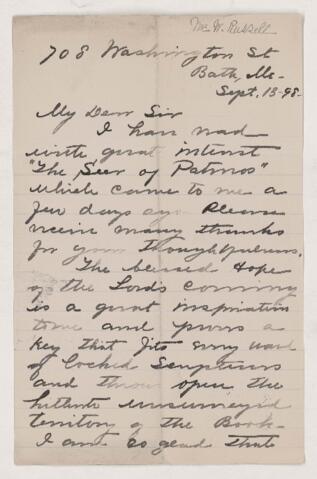 Mr. W. Russell
708 Washington St
Bath, Me-
Sept. 13-98-
My Dear Sir
I have read
with great interest
"The Seer of Patmos"
which came to me a
few days ago. Please
receive many thanks
for your thoughtfulness.
The blessed Hope
of the Lords coming
is a great inspiration
to me and proves a
key that fits every ward
of locked Scriptures
and throws open the
hitherto unsurveyed
territory of the Book-
I am so glad that